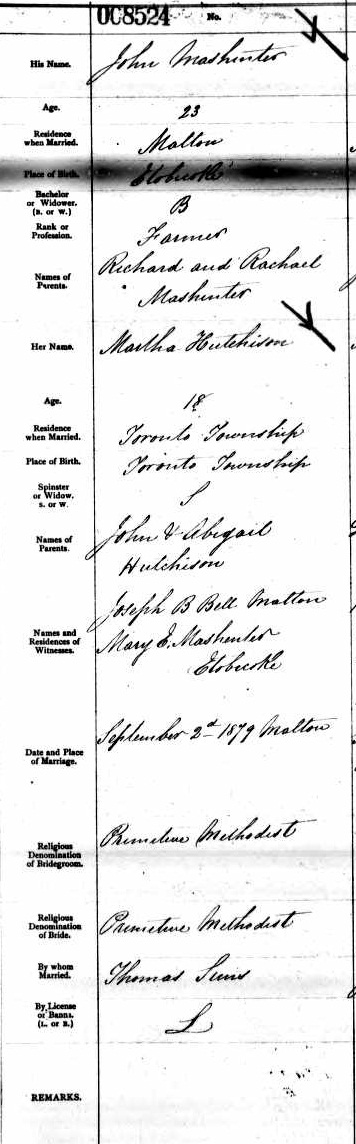 008524 No.
His Name. John Mashinter
Age. 23
Residence when Married. Malton
Place of Birth. Etobicoke
Bachelor or Widower. (B. or W.) B
Rank or Profession. Farmer
Names of Parents. Richard and Rachael
Mashinter
Her Name. Martha Hutchison
Age. 18
Residence when Married. Toronto Township
Place of Birth. Toronto Township
Spinster or Widow. S. or W. S
Names of Parents. John & Abigail
Hutchison
Names and Residences of Witnesses. Joseph B Bell Malton
Mary E. Mashenter
Etobicoke
Date and Place of Marriage. September 2nd 1879 Malton
Religious Denomination of Bridegroom. Primetive Methodist
Religious Denomination of Bride. Primetive Methodist
By whom Married. Thomas Sims
By License or Banns. (L. or B.) L
REMARKS.